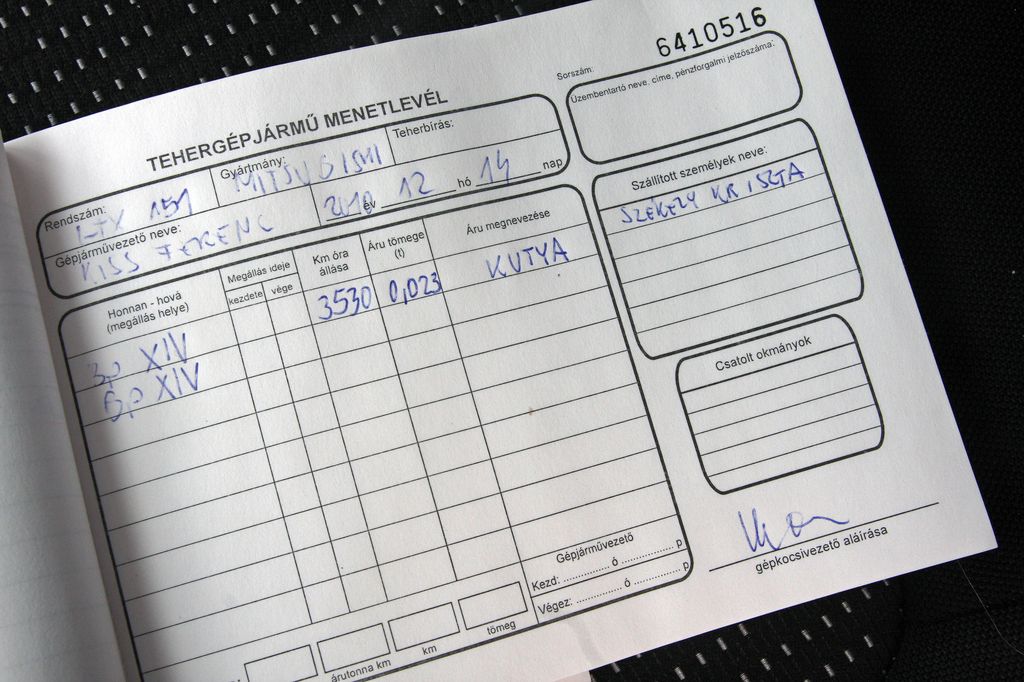 6410516
Sorszám:
TEHERGÉPJÁRMŰ MENETLEVÉL
Üzembentartó neve, címe, pénzforgalmi jelzőszáma:
Rendszám:
LTX 151
Gyártmány:
MITSUBISHI
Teherbírás:
Gépjárművezető neve:
KISS FERENC
2010 év 12 hó 14 nap
Szállított személyek neve:
SZÉKELY KRISZTA
Honnan - hová
(megállás helye)
Megállás ideje
kezdete vége
Km óra
állása
Áru tömege
(t)
Áru megnevezése
3530 0,023 KUTYA
Bp XIV
Bp XIV
Csatolt okmányok
Gépjárművezető
Kezd: ................ ó .................. p
Végez: ................ ó .................. p
árutonna km
km
tömeg
gépkocsivezető aláírása